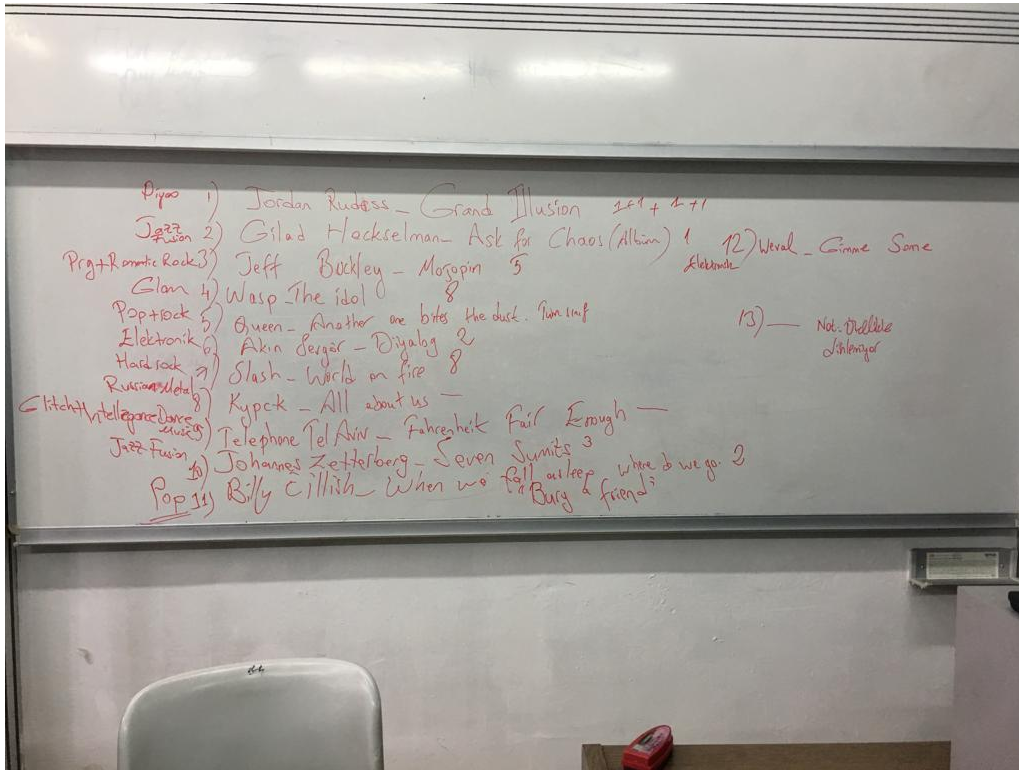 Piyao 1) Jordan Rudess - Grand Illusion 1+1+1+1
Jazz Fusion 2) Gilad Hackselman - Ask for Chaos (Albüm) 1
Prg+Romantic Rock 3) Jeff Buckley - Mojopin 5
Glam 4) Wasp - The idol 8
Pop+rock 5) Queen - Another one bites the dust. Tüm sınıf
Elektronik 6) Akın Sevgör - Diyalog 2
Hard rock 7) Slash - World on fire 8
Russian Metal 8) Kypck - All about us —
Glitch+Intellegence Dance Music 9) Telephone Tel Aviv - Fahrenheit Fair Enough —
Jazz Fusion 10) Johannes Zetterberg - Seven Sumits 3
Pop 11) Billy Eillish - When we fall asleep, where do we go. 2
"Bury a friend"
12) Weval - Gimme Some
Elektronik
13) — Not. Özellikle
dinlemiyor